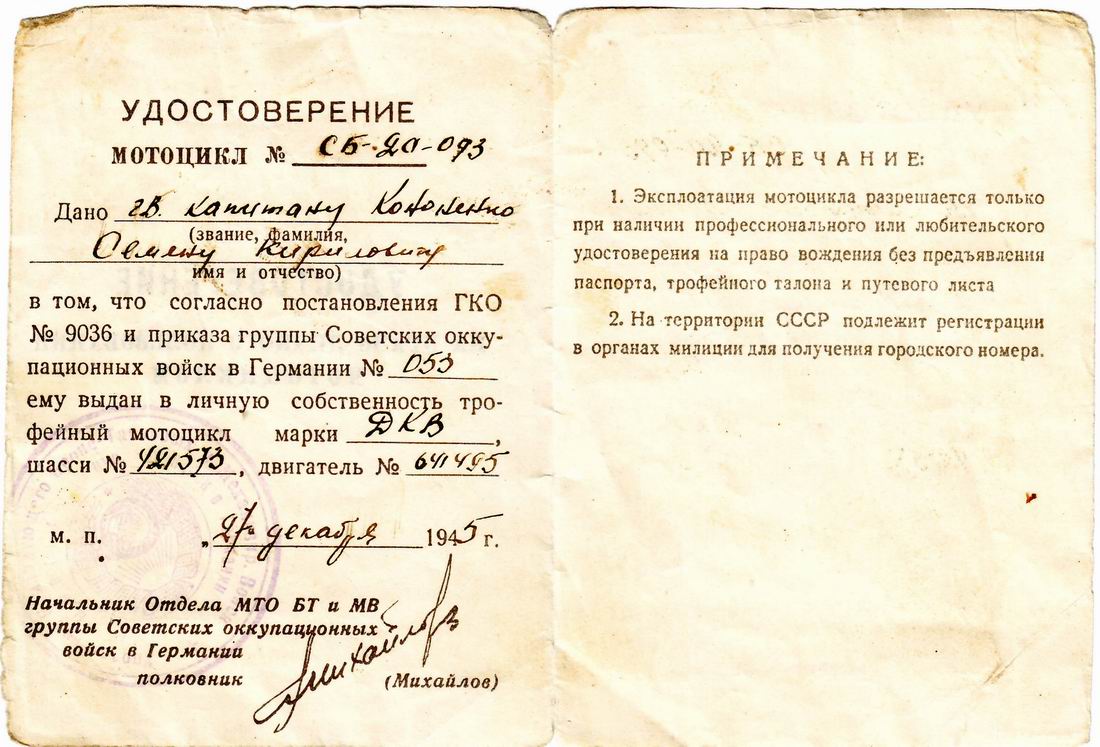 УДОСТОВЕРЕНИЕ
МОТОЦИКЛ № СБ-20-093
Дано гв. капитану Кононенко
(звание, фамилия,
Семену Кириловичу
имя и отчество)
в том, что согласно постановления ГКО
№ 9036 и приказа группы Советских окку-
пационных войск в Германии № 053
ему выдан в личную собственность тро-
фейный мотоцикл марки ДКВ,
шасси № 421573, двигатель № 641495
м. п. „27" декабря 1945 г.
Начальник Отдела МТО БТ и МВ
группы Советских оккупационных
войск в Германии
полковник (Михайлов)
Михайлов
ПРИМЕЧАНИЕ:
1. Эксплоатация мотоцикла разрешается только
при наличии профессионального или любительского
удостоверения на право вождения без предъявления
паспорта, трофейного талона и путевого листа
2. На территории СССР подлежит регистрации
в органах милиции для получения городского номера.